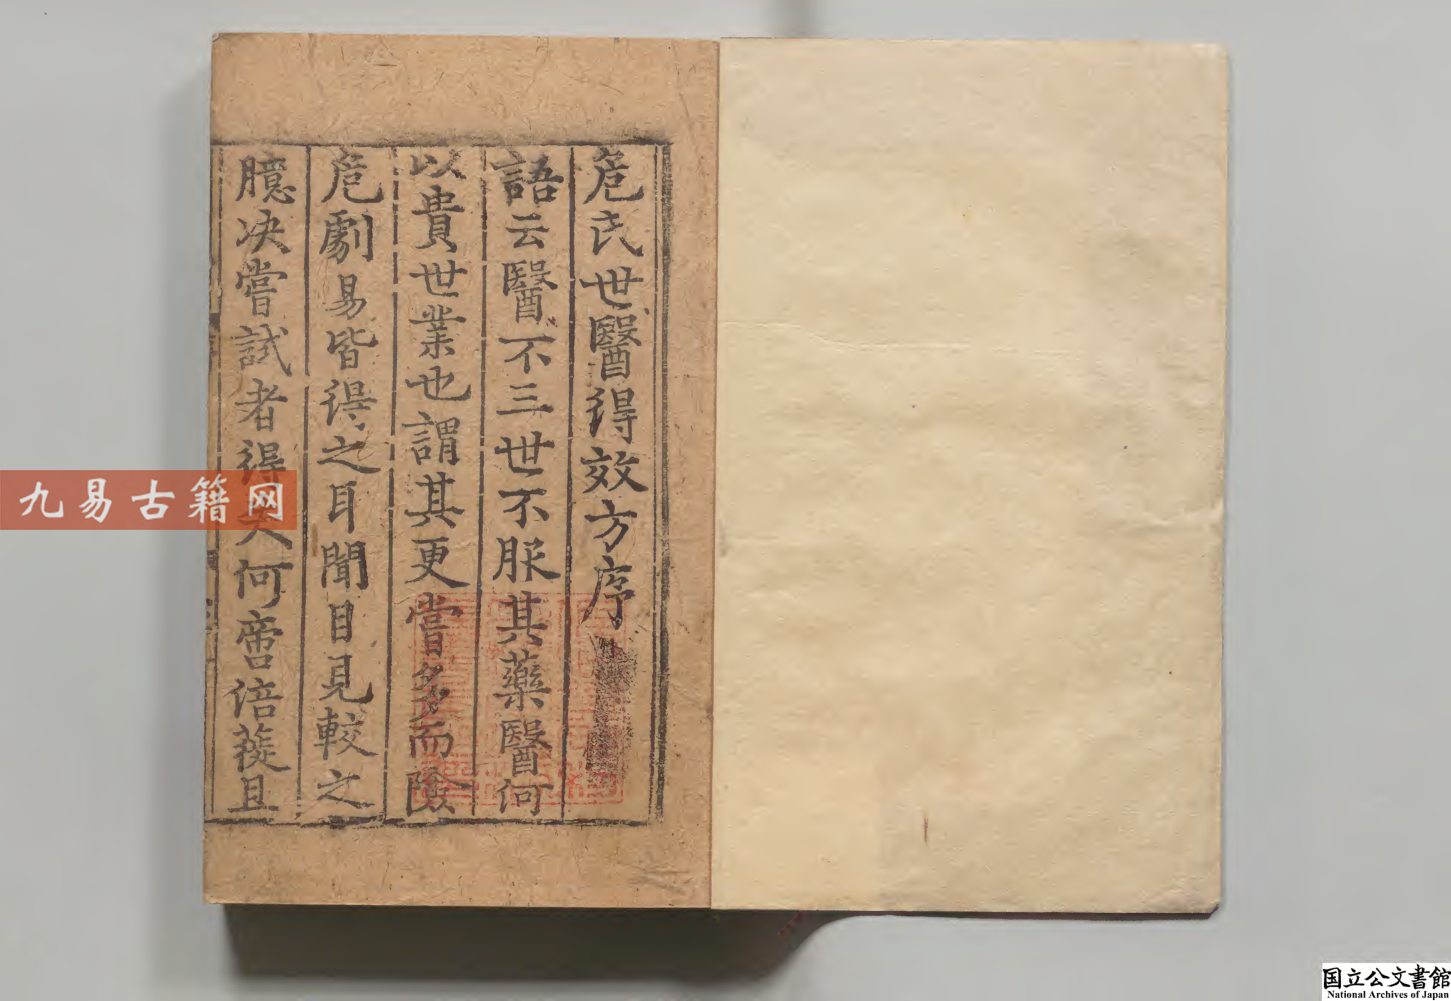 危氏世醫得效方序
語云醫不三世不服其藥醫何
以貴世業也謂其更嘗多而險
危劇易皆得之耳聞目見較之
臆决嘗試者得失何啻倍蓰且
九易古籍网
国立公文書館
National Archives of Japan